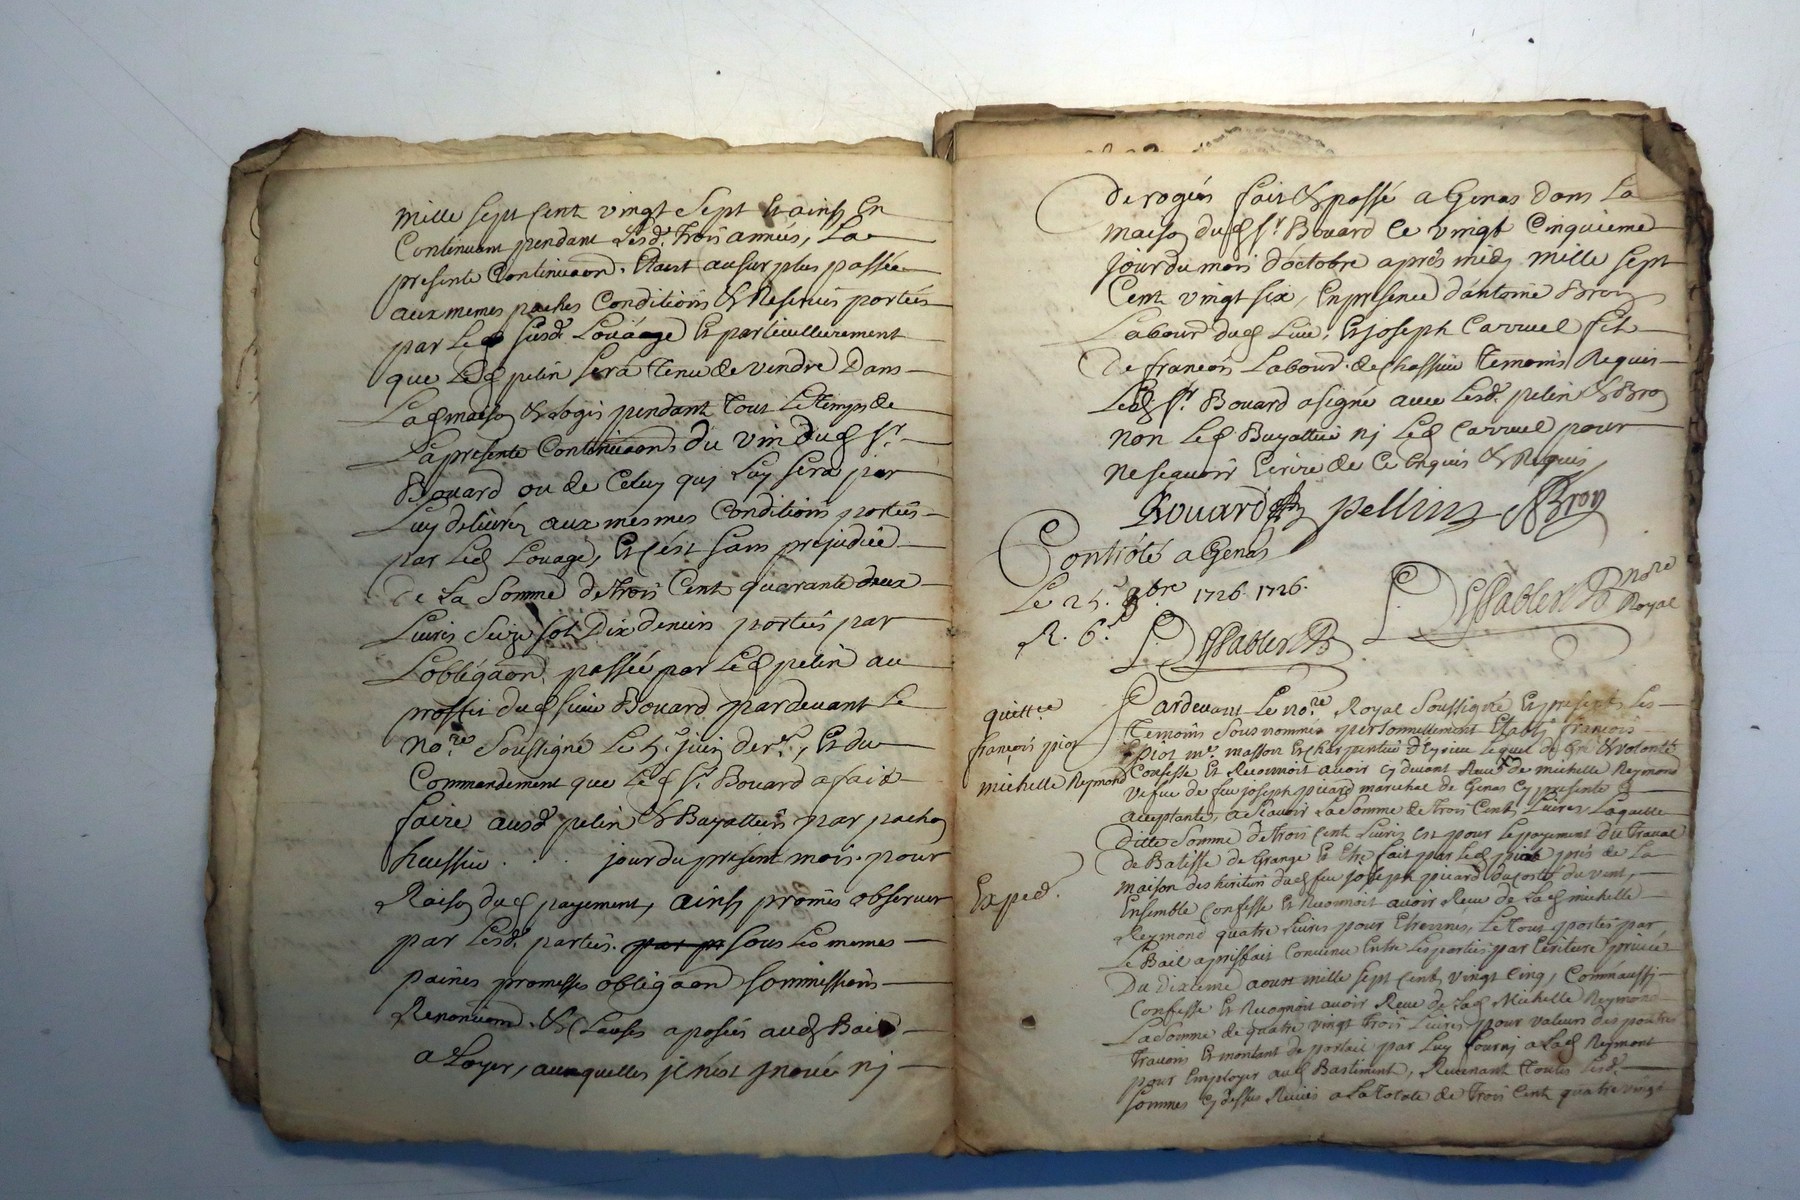 mille sept cent vingt sept et ainsy en
Continuant pendant lesd. trois années, La
presente Continuaon. Etant au surplus passée
aux memes paches Conditions & Reserves portées
par led susd. Louage et particullierement
que led pelin sera tenu de vendre Dans
Lad maison & logis pendant tout le temps de
La presente Continuaon du vin dud Sr.
Bouard ou de Celuy quy Luy sera par
Luy delivré aux mesmes Conditions portées
par led Louage, et c'est sans prejudice
de La Somme de trois Cent quarante deux
Livres seize sol Dix deniers portées par
L'obligaon passée par led pelin au
proffit dud sieur Bouard pardevant le
nore. soussigné le 5e. juin der., et du
Commandement que led Sr. Bouard a fait
faire ausd. pelin & Bayattier par
huissier . . . jour du present mois. pour
Raison dud payement, ainsy promis observer
par lesd. parties. sous les memes
paines promesses obligaon soumissions
Renonciaon. & Clauses aposées aud Bail
a Loyer, auxquelles il n'est jnové nj
derogées fait & passé a Genas dans la
maison dud Sr. Bouard ce vingt cinquieme
jour du mois d'octobre aprés midy mille sept
Cent vingt six, En presence d'antoine Broy
Labour. dud lieu, et joseph Carruel fils
de francois Labour. de Chassieu temoins Requis
Led Sr. Bouard a signé avec lesd. pelin & Broy
non led Bayattier nj led Carruel pour
ne scavoir Ecrire de ce Enquis & Requis,
Bouard pellin ABroy
Controlé a Genas
Le 25. 8bre 1726. 1726.
R. 6s.
nore
Royal
quittce
françois piot
michelle Reymond
Exped.
Pardevant le nore. Royal soussigné et presents les
temoins sousnommés personnellement Etably françois
piot me. masson et charpentier d'Eyrieu lequel de gré & volonté
Confesse et Reconnoit avoir cy devant Receu de michelle Reymond
vefue de feu joseph picard marechal de Genas cy presente &
aceptante, a scavoir La somme de trois Cent Livres, Laquelle
ditte somme de trois Cent Livres est pour le payement du travail
de Batisse de Grange et Etre fait par led piot prés de La
maison des hoiries dud feu joseph picard du coté du vent,
Ensemble Confesse et Reconnoit avoir Receu de Lad michelle
Reymond quatre Livres pour Etrennes, Le tout portés par
Le Bail a prisfait Convenu Entre les parties par Ecriture privée
Du dixieme aoust mille sept Cent vingt cinq, Comm'aussi
Confesse et Recognoit avoir Receu de Lad Michelle Reymond
La somme de quatre vingt trois Livres pour valeurs des poutres
travons et montant de portail par Luy fourni a Lad Reymont
pour Employer aud Bastiment, Revenant toutes Lesd.
sommes cy dessus Receües a La totale de trois Cent quatre vingt